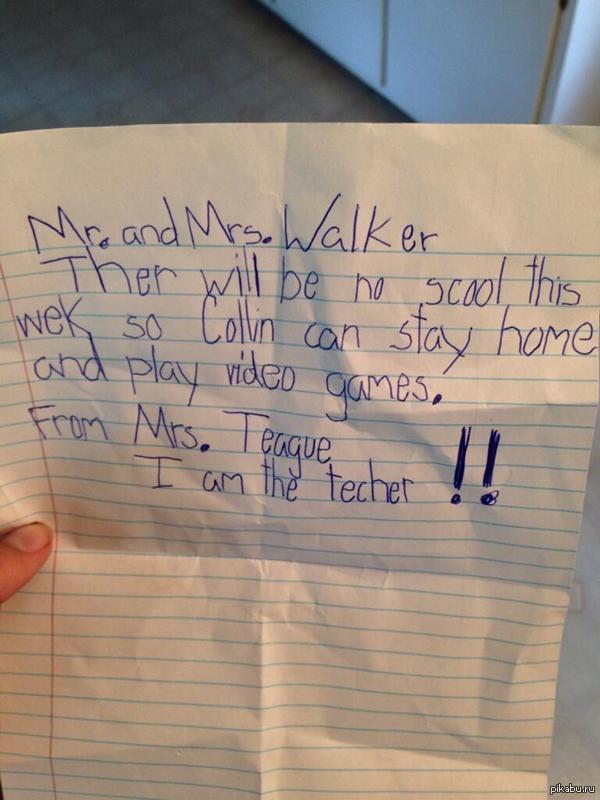 Mr. and Mrs. Walker
Ther will be no scool this
wek so Collin can stay home
and play video games.
From Mrs. Teague
I am the techer !!
pikabu.ru